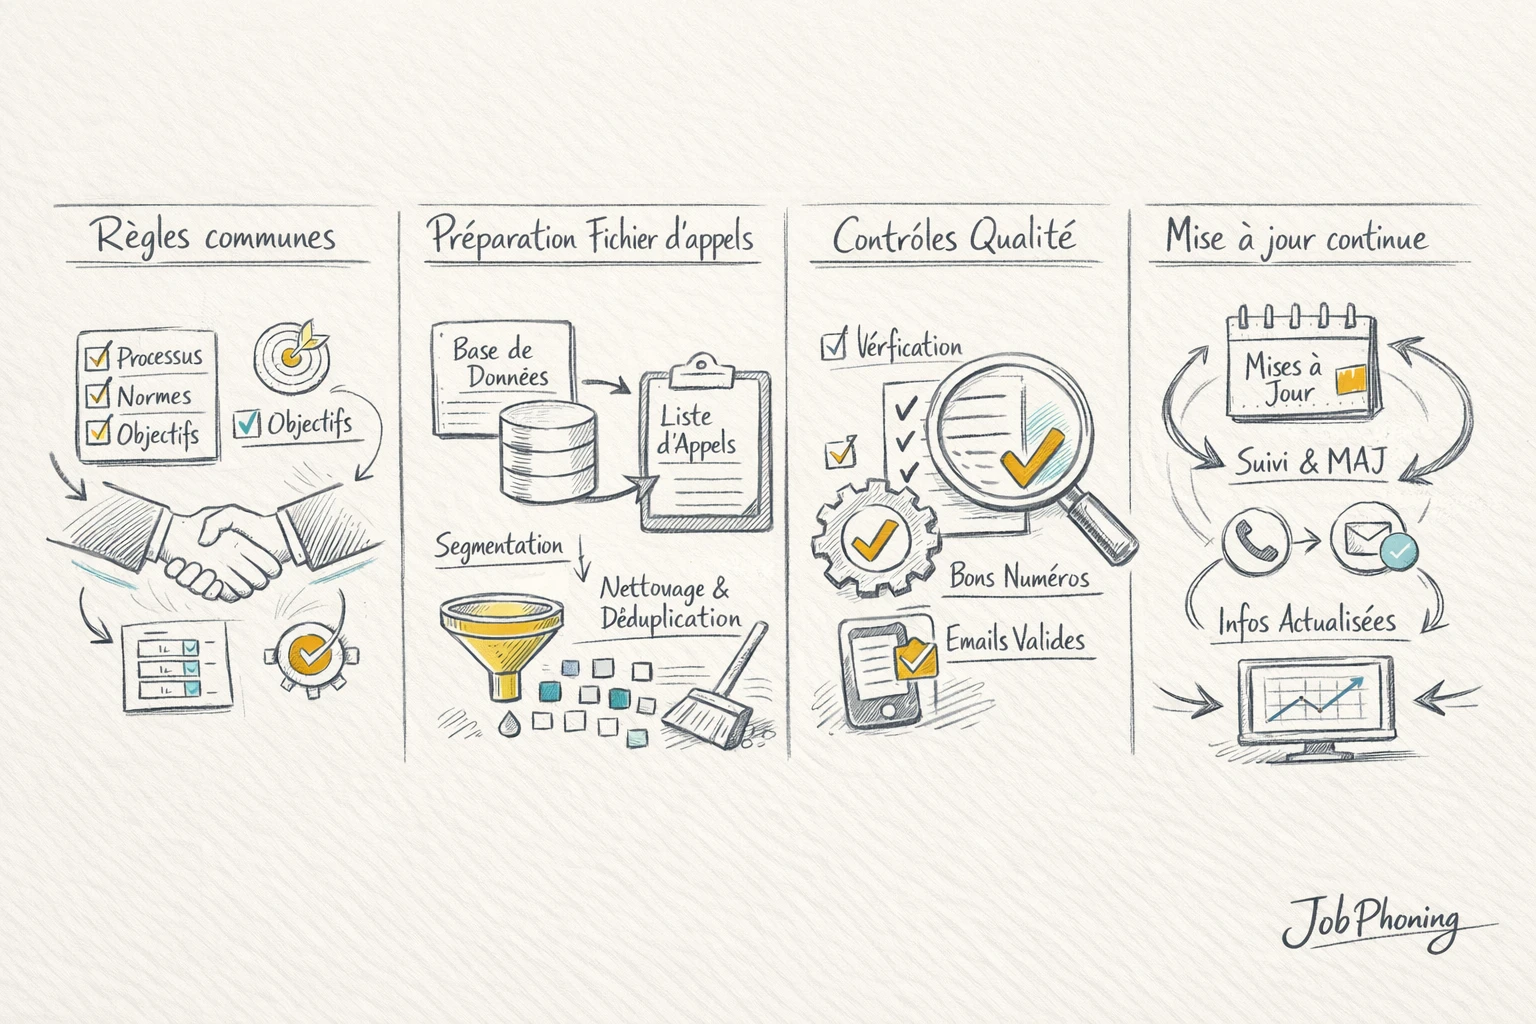 Règles communes
Processus
Normes
Objectifs
Objectifs
Préparation Fichier d'appels
Base de
Données
Liste
d'Appels
Segmentation
Nettouage &
Dèduplication
Contróles Qualité
Vérfication
Bons Numéros
Emails Valides
Mise à jour continue
Mises à
Jour
Suivi & MAJ
Infos Actualisées
JobPhoning